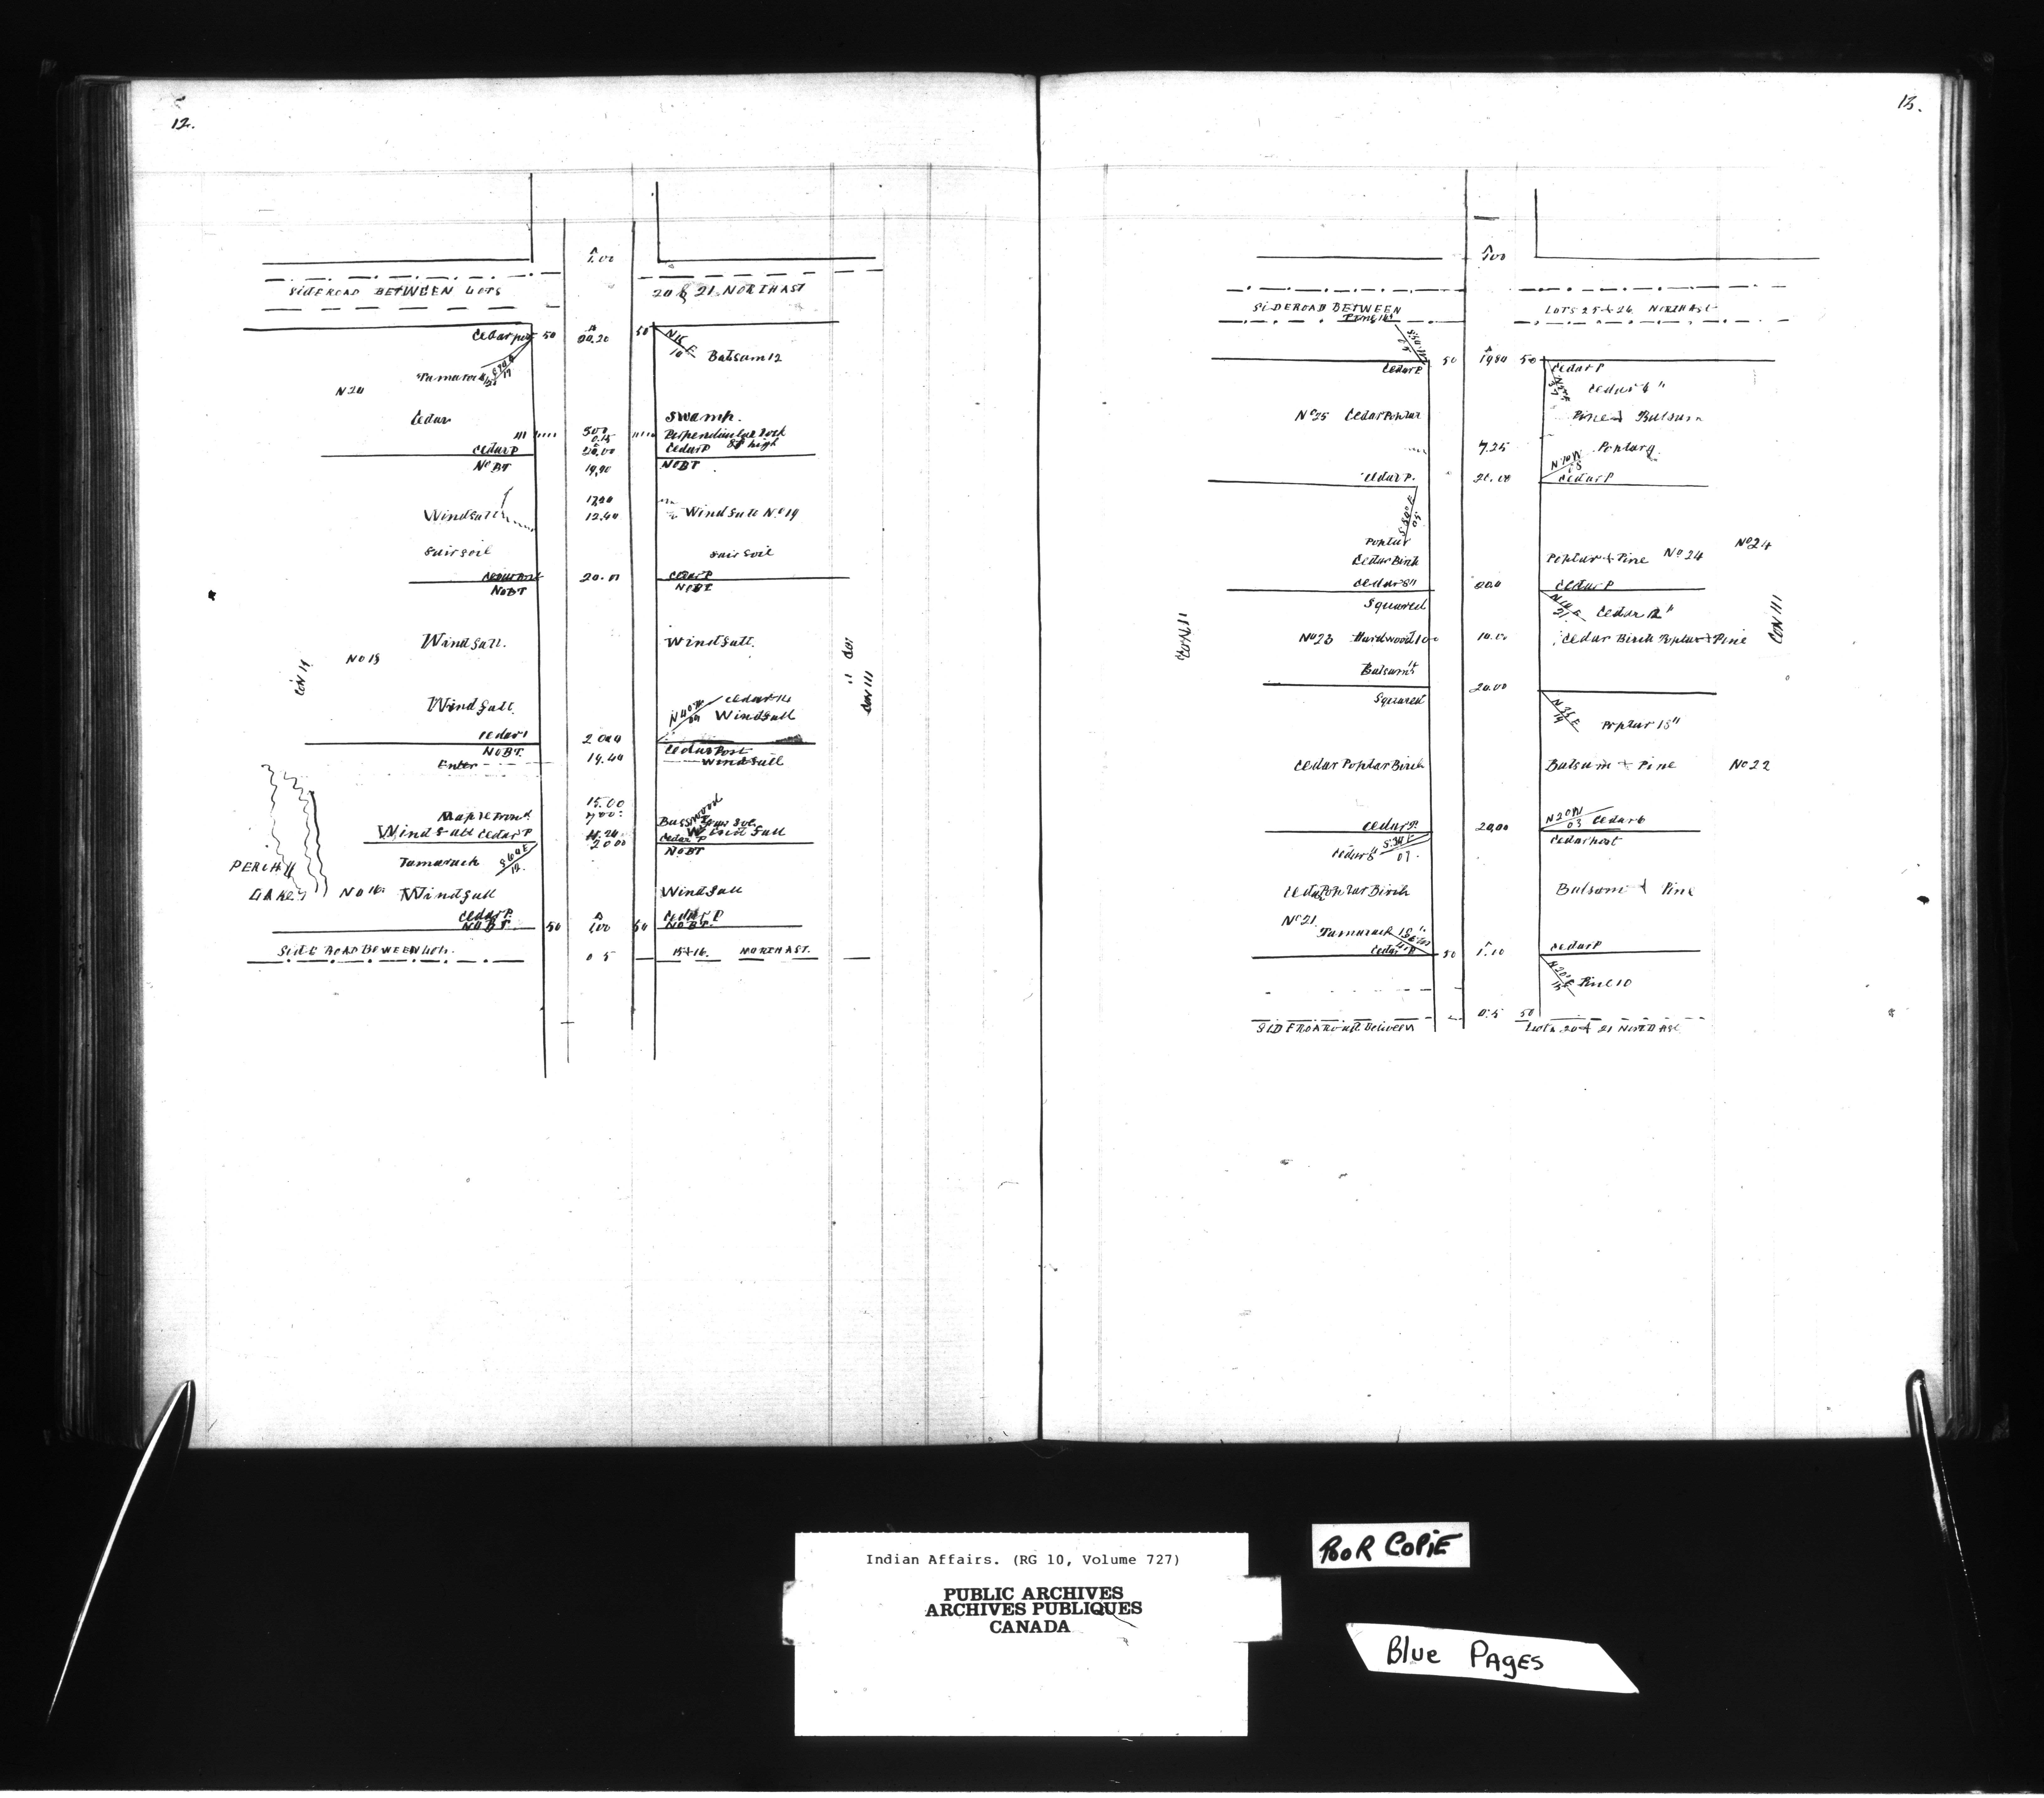 12.
1.00
SIDEROAD BETWEEN LOTS 20 & 21 NORTHAST
Cedar post 50 20.20 50 N15E 10 Balsam 12
Tamarack
No 20
Cedar Swamp.
500 Perpendicular rock
0.15 80 high
Cedar P 20.00 Cedar P
No BT 19.90 No BT
17.00
Windfall 12.40 Windfall No 19
fair soil fair soil
Cedar Post 20.00 Cedar P
No BT No BT
Windfall. Windfall.
No 18
CON 11 CON 111
Cedar 14
N40W 09
Windfall. Windfall
Cedar 2000 Cedar Post
No BT.
Enter 19.40 Windfall
15.00
Maple 700 Basswood
Windfall Cedar P 11.20 Cedar P Windfall
2000 No BT
PERCH LAKE
Tamarack S60E 12.
No 16 Windfall Windfall
Cedar P. Cedar P
No BT. 50 1.00 50 No BT.
SIDE ROAD BETWEEN LOTS. 05 15+16. NORTHAST.
13.
1.00
SIDEROAD BETWEEN LOTS 25 & 26 NORTHAST
Cedar P 50 1980 50 Cedar P
Cedar 4"
No 25 Cedar Poplar Pine & Balsam
7.25 Poplar 9
N70W 15
Cedar P. 20.00 Cedar P
S50E 05
Poplar
Cedar Birch Poplar + Pine No 24 No 24
Cedar 8" 20.0 Cedar P
Squared N10E 21 Cedar 12"
CON 11 No 23 Hardwood 10 10.00 Cedar Birch Poplar + Pine CON 111
Balsam
20.00
Squared N35E 19 Poplar 15"
Cedar Poplar Birch Balsam + Pine No 22
N20W 03 Cedar 6
Cedar P. 20.00 Cedar post
Cedar 8" 07.
Cedar Poplar Birch Balsam & Pine
No 21
Tamarack 18"
Cedar P 50 1.10 Cedar P
N20E 15 Pine 10
0.5 50
SIDEROAD Between Lots 20 & 21 NORTHAST
Indian Affairs. (RG 10, Volume 727)
PUBLIC ARCHIVES
ARCHIVES PUBLIQUES
CANADA
POOR COPIE
Blue PAGES